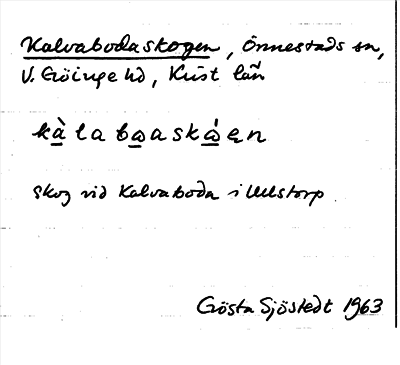 Kalvabodaskogen, Önnestads sn,
V. Göinge hd, Krist län
kàlabωaskώen
skog vid Kalvaboda i Ullstorp
Gösta Sjöstedt 1963